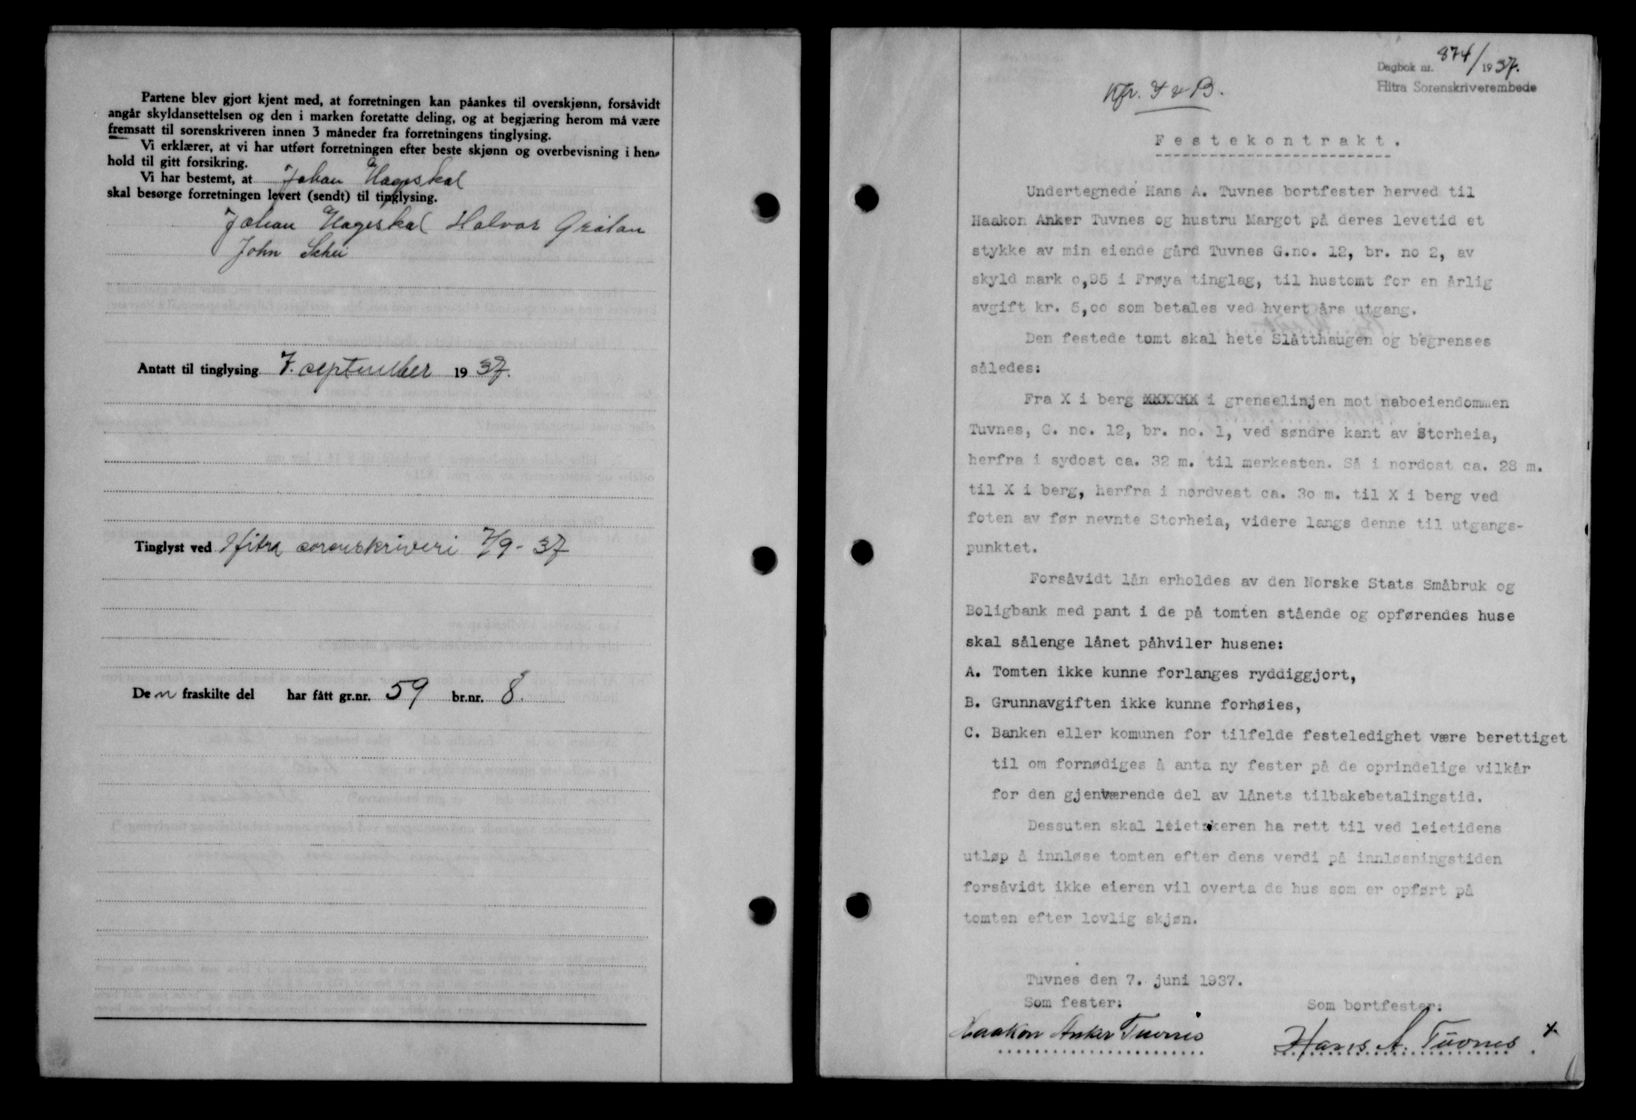 Partene blev gjort kjent med, at forretningen kan påankes til overskjønn, forsåvidt
angår skyldansettelsen og den i marken foretatte deling, og at begjæring herom må være
fremsatt til sorenskriveren innen 3 måneder fra forretningens tinglysing.
Vi erklærer, at vi har utført forretningen efter beste skjønn og overbevisning i hen-
hold til gitt forsikring.
Vi har bestemt, at Johan Hageskal
skal besørge forretningen levert (sendt) til tinglysing.
Johan Hageskal Halvor Gråtan
John Schei
Antatt til tinglysing 7. september 1937.
Tinglyst ved Hitra sorenskriveri 7/9-37
Den fraskilte del har fått gr.nr. 59 br.nr. 8.
Dagbok nr. 874/1937.
Hitra Sorenskriverembede
Festekontrakt.
Undertegnede Hans A. Tuvnes bortfester herved til
Haakon Anker Tuvnes og hustru Margot på deres levetid et
stykke av min eiende gård Tuvnes G.no. 12, br. no 2, av
skyld mark o,95 i Frøya tinglag, til hustomt for en årlig
avgift kr. 5,oo som betales ved hvert års utgang.
Den festede tomt skal hete Slåtthaugen og begrenses
således:
Fra X i berg XXXXXX i grenselinjen mot naboeiendommen
Tuvnes, G. no. 12, br. no. 1, ved søndre kant av Storheia,
herfra i sydost ca. 32 m. til merkesten. Så i nordost ca. 28 m.
til X i berg, herfra i nordvest ca. 3o m. til X i berg ved
foten av før nevnte Storheia, videre langs denne til utgangs-
punktet.
Forsåvidt lån erholdes av den Norske Stats Småbruk og
Boligbank med pant i de på tomten stående og opførendes huse
skal sålenge lånet påhviler husene:
A. Tomten ikke kunne forlanges ryddiggjort,
B. Grunnavgiften ikke kunne forhøies,
C. Banken eller komunen for tilfelde festeledighet være berettiget
til om fornødiges å anta ny fester på de oprindelige vilkår
for den gjenværende del av lånets tilbakebetalingstid.
Dessuten skal leietakeren ha rett til ved leietidens
utløp å innløse tomten efter dens verdi på innløsningstiden
forsåvidt ikke eieren vil overta de hus som er opført på
tomten efter lovlig skjøn.
Tuvnes den 7. juni 1937.
Som fester: Som bortfester:
Haakon Anker Tuvnes Hans A. Tuvnes